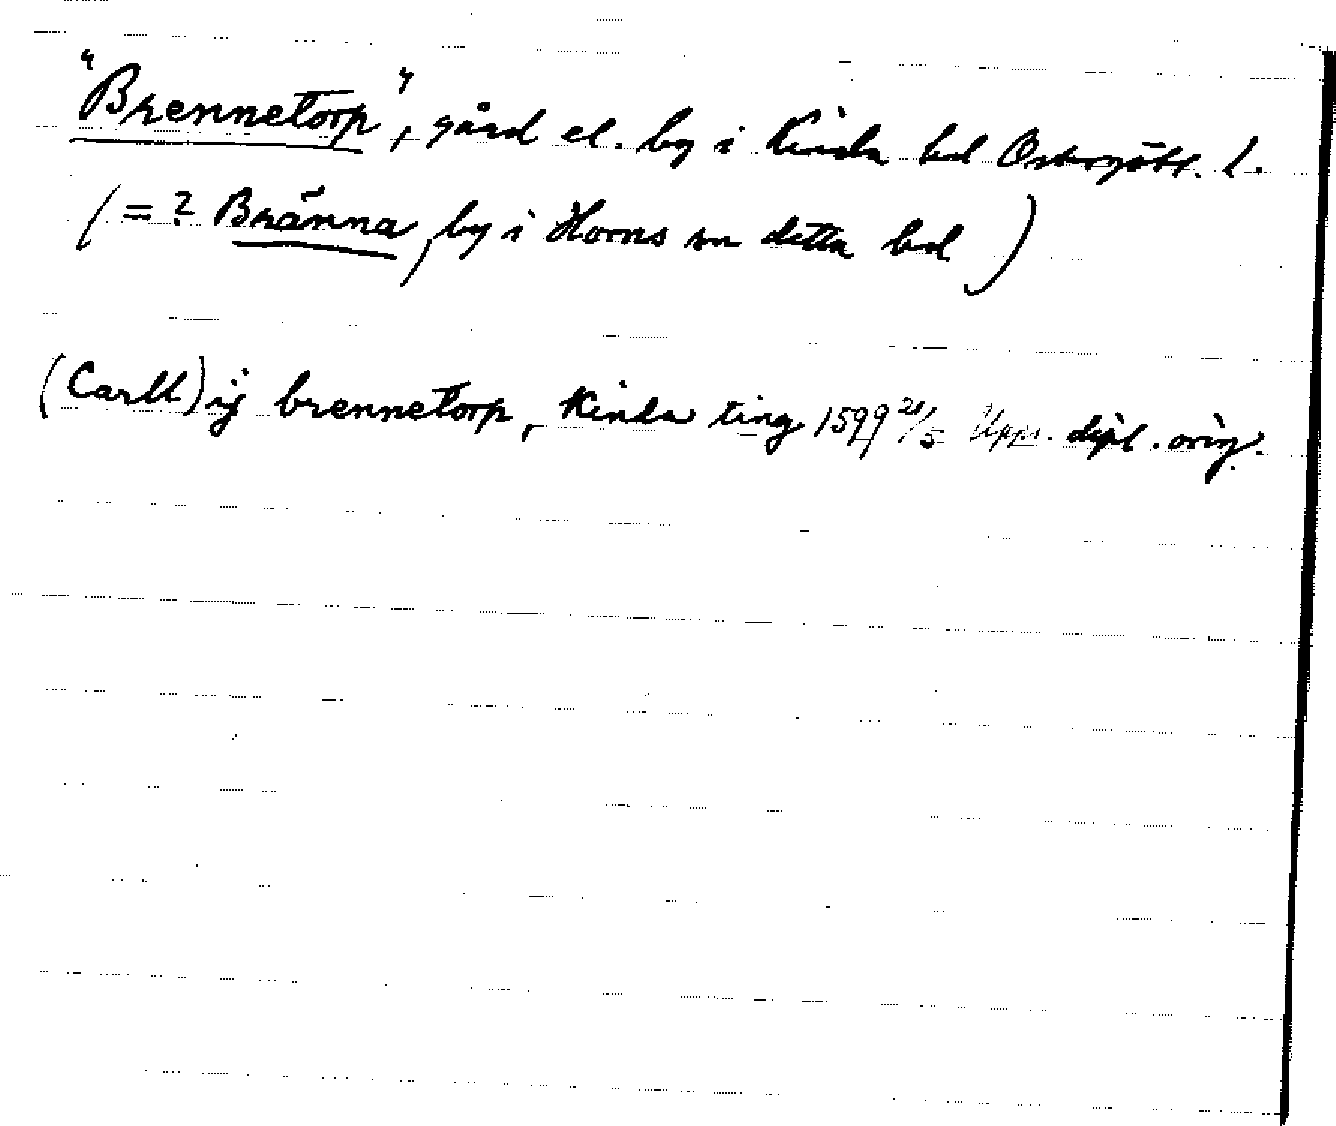 "Brennetorp", gård el. by i Kinda hd Östergötl. l.
(= ? Bränna, by i Horns sn detta hd)
(Carll) ij brennetorp, Kinda ting 1599 21/5 Upps. dipl. orig.